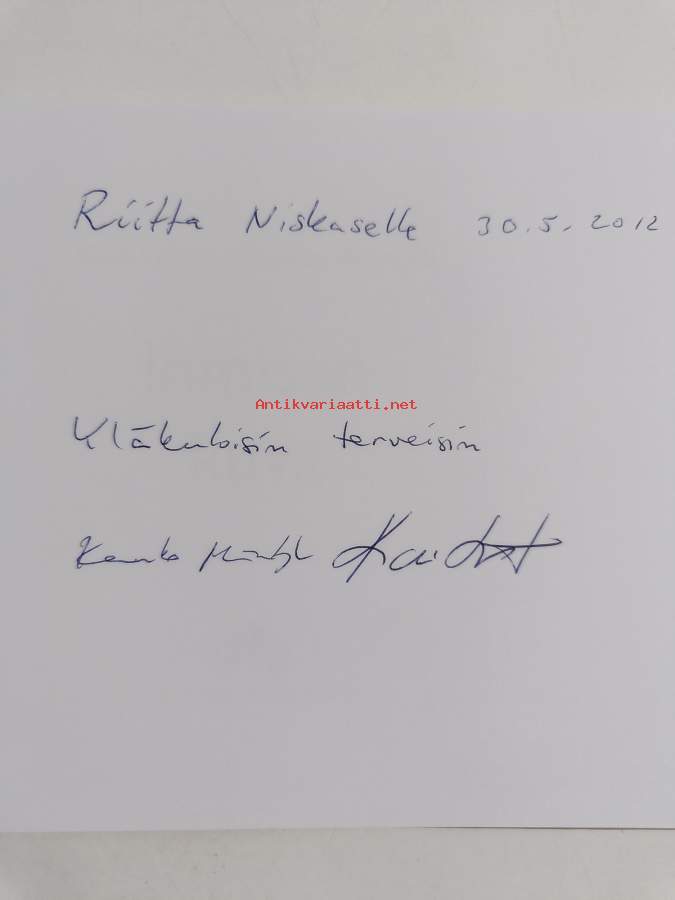 Riitta Niskaselle 30.5.2012
Antikvariaatti.net
Yläkuloisin terveisin